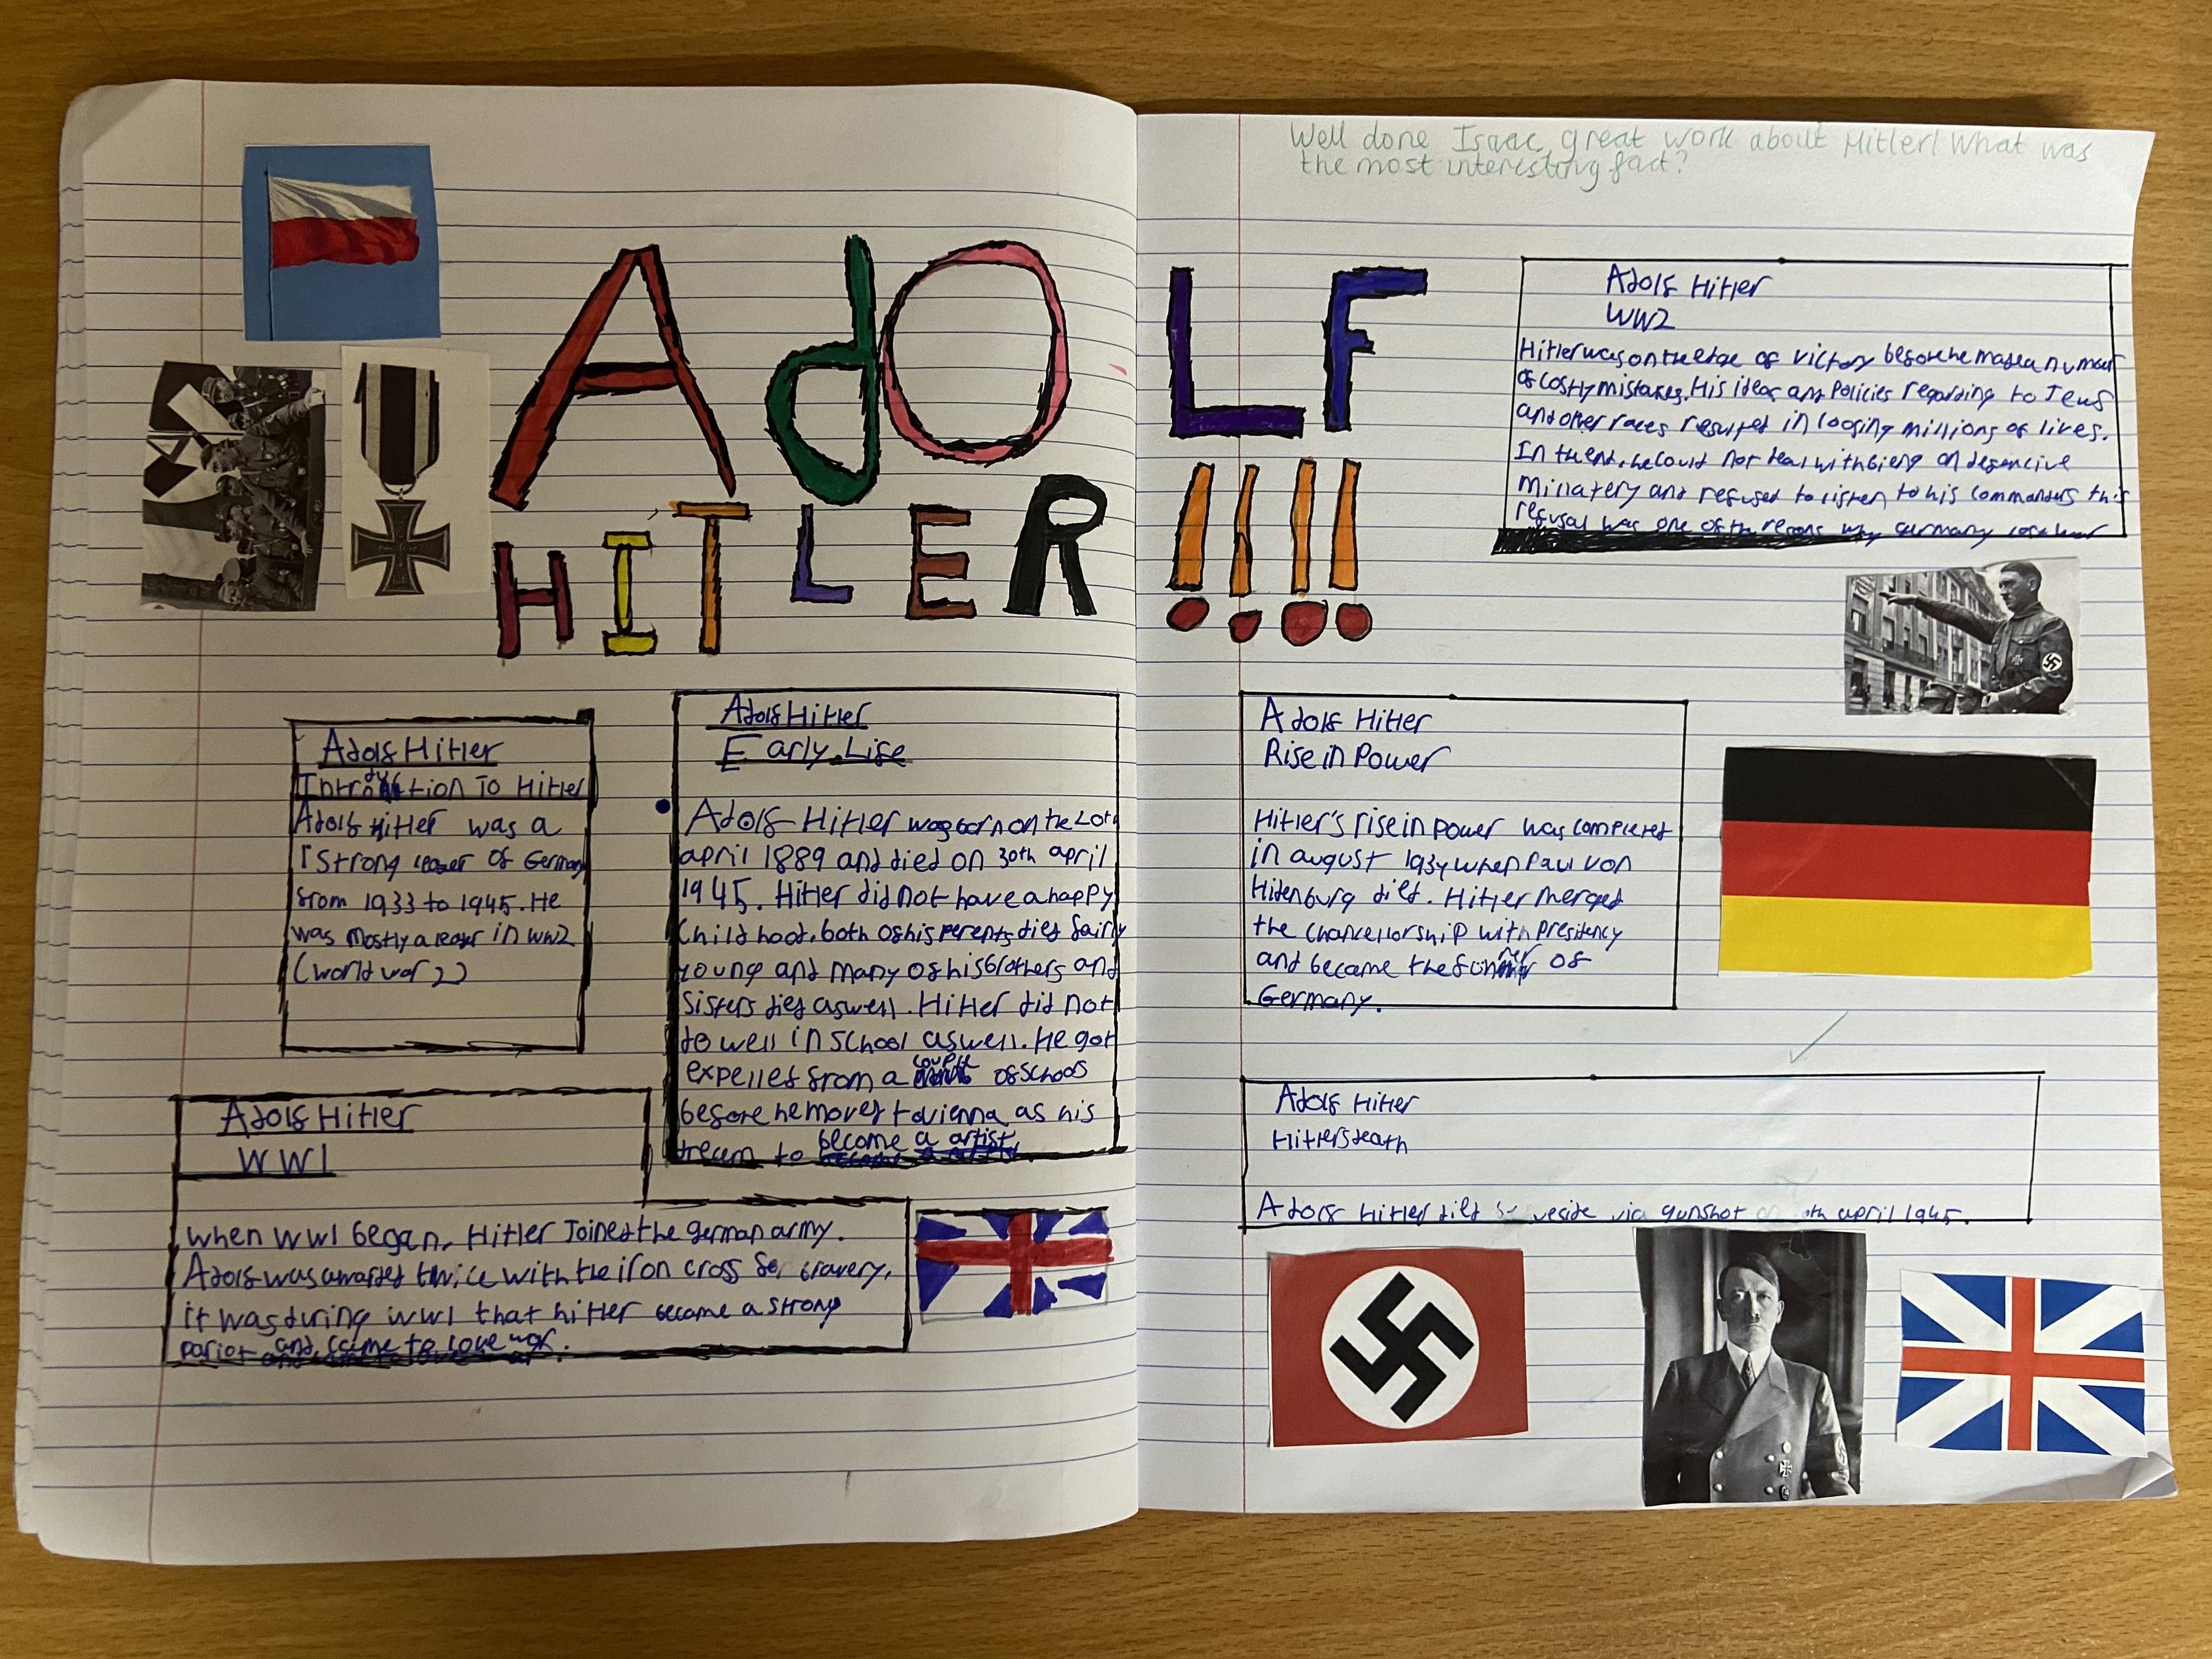 Well done Isaac, great work about Hitler! What was
the most interesting fact?
AdOLF
HITLER !!!!
Adolf Hitler
Introduction To Hitler
Adolf Hitler was a
strong leader of Germany
from 1933 to 1945. He
was mostly a leader in WW2
(world war 2)
Adolf Hitler
Early Life
Adolf Hitler was born on the 20th
april 1889 and died on 30th april
1945. Hitler did not have a happy
Child hood, both of his perents died fairly
young and many of his brothers and
sisters died aswell. Hitler did not
do well in school aswell. He got
expelled from a couple of schools
before he moved to vienna as his
dream to become a artist.
Adolf Hitler
WW1
When WW1 began, Hitler Joined the german army.
Adolf was awarded twice with the iron cross for bravery,
it was during WW1 that hitler became a strong
pariot and came to love war.
Adolf Hitler
WW2
Hitler was on the edge of victory before he made a number
of costly mistakes. His ideas and policies regarding to Jews
and other races resulted in loosing millions of lives.
In the end, he could not deal with bieng on defencive
millatery and refused to listen to his commanders this
refusal was one of the resons why Germany lost war
Adolf Hitler
Rise in Power
Hitler's rise in power was completed
in august 1934 when Paul von
Hidenburg died. Hitler merged
the chancellorship with presidency
and became the of
Germany.
Adolf Hitler
Hitlers death
Adolf Hitler died via gunshot april 1945.